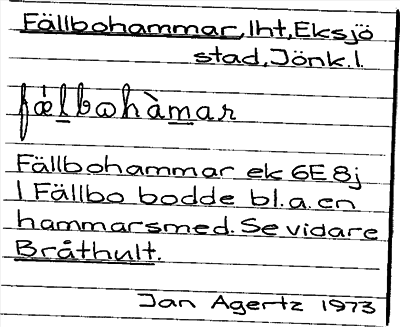 Fällbohammar, lht, Eksjö
stad, Jönk. l.
fä́lbohàmar
Fällbohammar ek 6E8j
I Fällbo bodde bl.a. en
hammarsmed. Se vidare
Bråthult.
Jan Agertz 1973